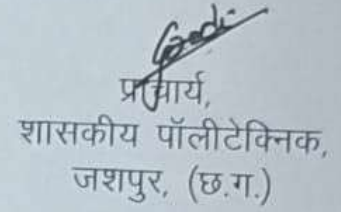 प्राचार्य,
शासकीय पॉलीटेक्निक,
जशपुर, (छ.ग.)